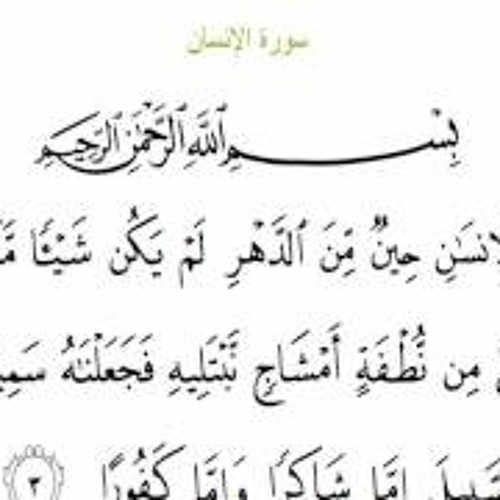 سورة الإنسان
بِسْمِ ٱللَّهِ ٱلرَّحْمَٰنِ ٱلرَّحِيمِ
لْإِنسَٰنِ حِينٌ مِّنَ ٱلدَّهْرِ لَمْ يَكُن شَيْـًٔا
مِن نُّطْفَةٍ أَمْشَاجٍ نَّبْتَلِيهِ فَجَعَلْنَٰهُ
إِمَّا شَاكِرًا وَإِمَّا كَفُورًا ٣